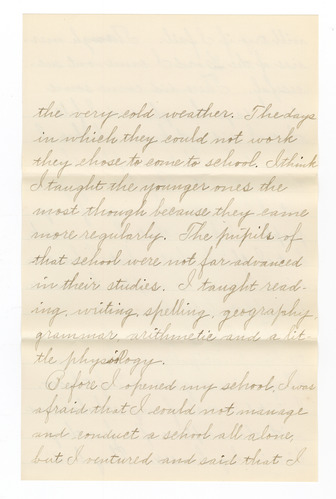 the very cold weather. The days
in which they could not work
they chose to come to school. I think
I taught the younger ones the
most though because they came
more regularly. The pupils of
that school were not far advanced
in their studies. I taught read-
ing, writing, spelling, geography
grammar, arithmetic and a lit-
tle physiology.
Before I opened my school, I was
afraid that I could not manage
and conduct a school all alone,
but I ventured and said that I